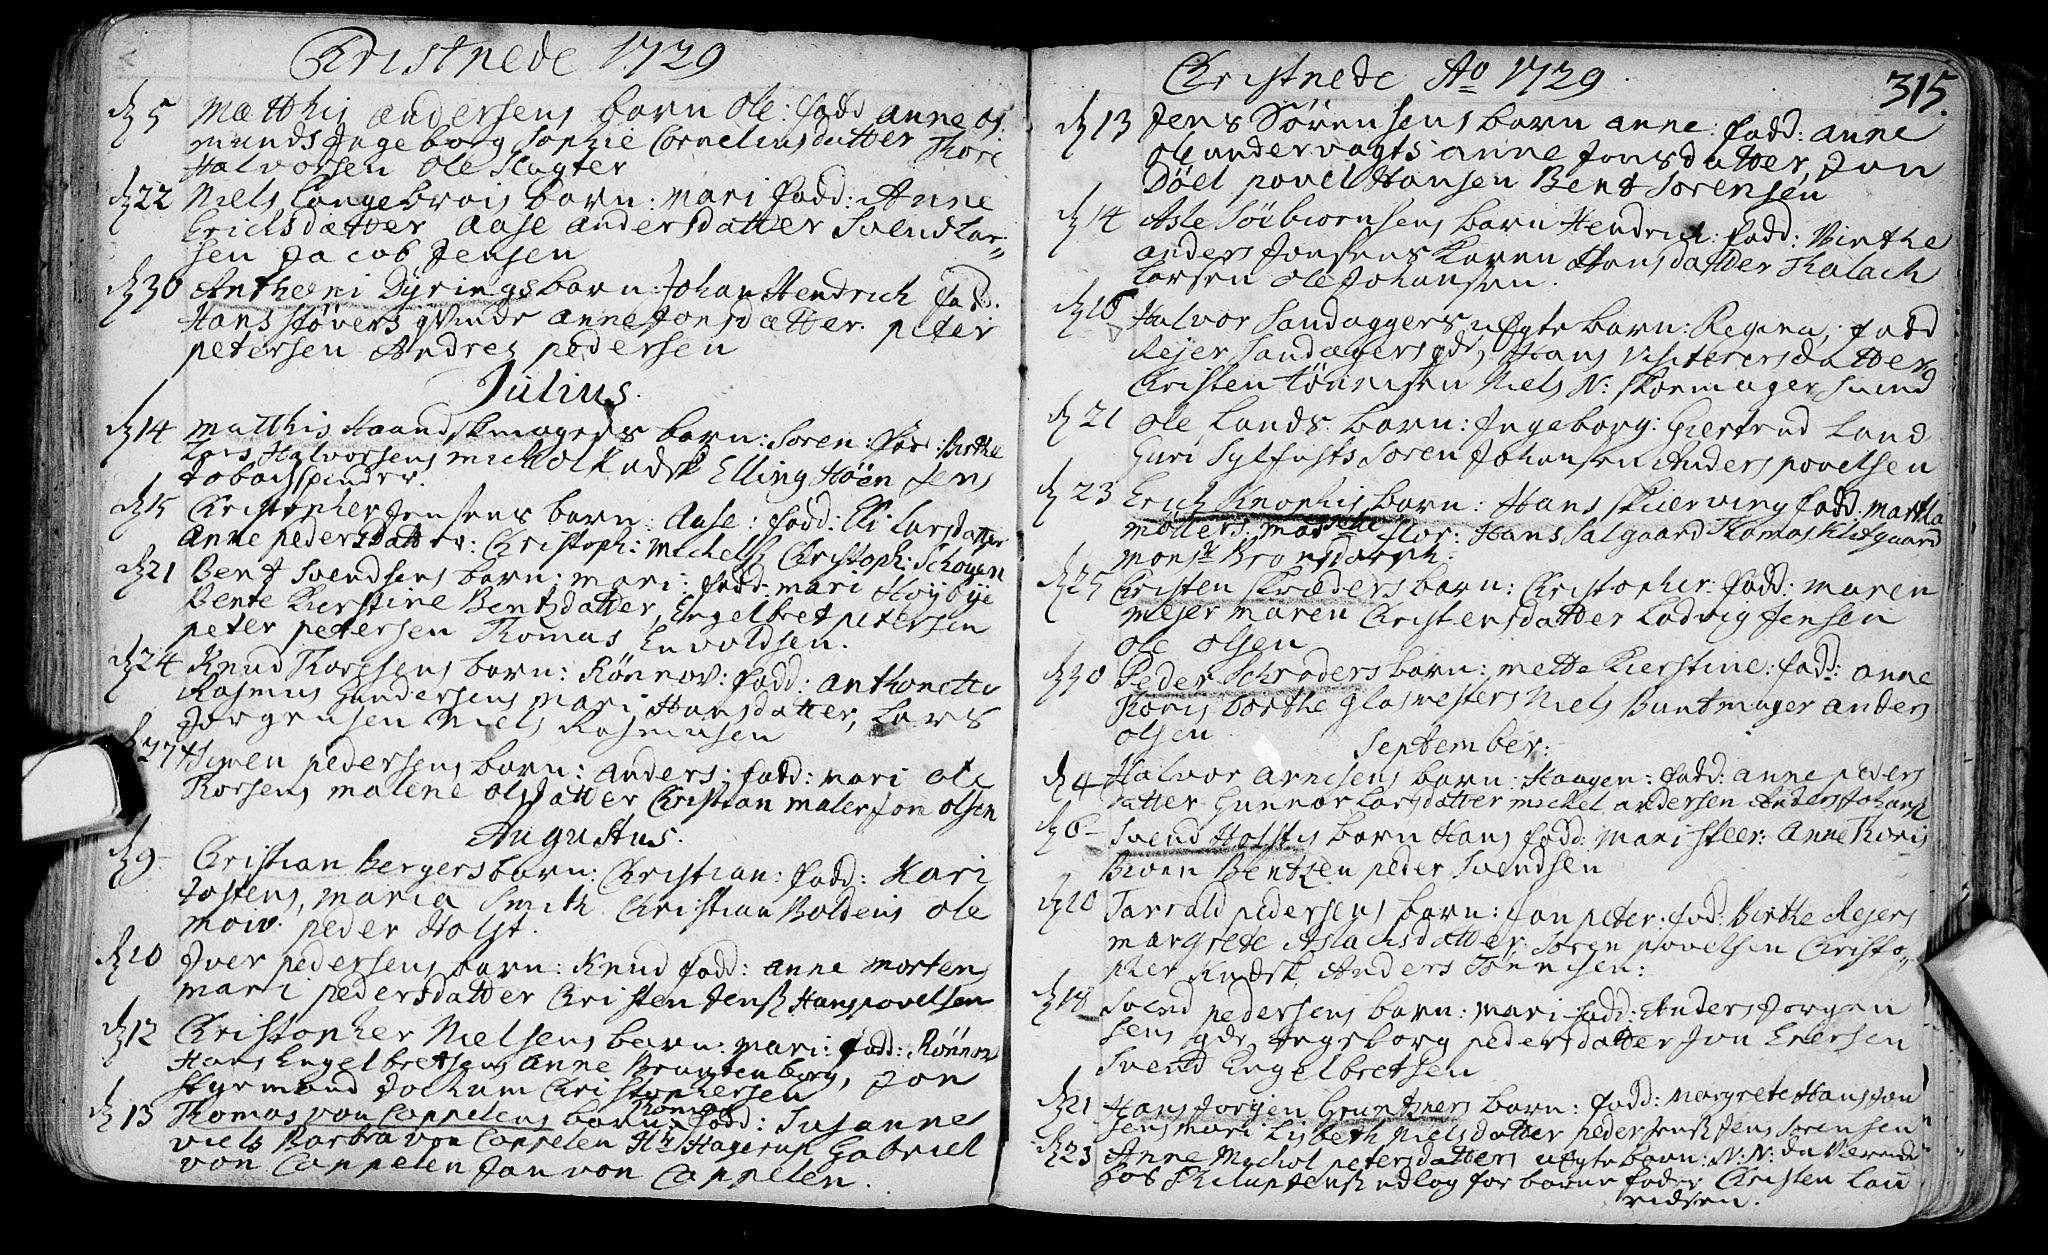 Christnede 1729
d. 5 Matthis andersens barn Ole: fadd anne as
munds Ingeborg Sophie Cornelius datter Thore
Halvorsen Ole Slagter
d. 22 Niels Langebrois barn: Mari fadd: Anne
Erichsdatter Aase andersdatter Svend Lar-
sen Jacob Jensen
d. 30 Anthoni Dyrings barn: Johan Hendrich fad:
Hans støvers qvinde anne Jonsdatter. peter
petersen Andres pedersen
Julius.
d. 14 Matthis Haandskmagers barn: Soren: fad: Birthe
Lars Halvorsens Michel Knudsk Elling Höen Jens
tobachspinder.
d. 15 Christopher Jensens barn: Aase: fadd: Eli Larsdatter
Anne pedersdatter: Christoph: Michels Christoph: Schøyen
d. 21 Bent Svendsens barn: mari: fadd: mari Høybye
Bente Kierstine Bentsdatter, Engelbret petersen
peter petersen Thomas Envoldsen.
d. 24 Knud Thoresens barn: Rönnov: fadd: Anthonette
Rasmus Gundersens Mari Hansdatter, Lars
Jorgensen Niels Rasmusen
d. 27 Simen pedersens barn: anders: fadd: mari Ole
Thorsens malene olsdatter Christian maler Jon olsen
Augustus.
d. 9 Christian Bergers barn: Christian: fadd: Kari
Jostens, maria Smith. Christian Boldens Ole
Moiv: peder Holst.
d. 10 Iver pedersens barn: Knud fadd: anne mortens
mari pedersdatter Christen Jensk Hans povelsen
d. 12 Christopher Nielsens barn: mari: fadd: Rönnov
Hans Engelbretsens anne Brandenborg, Jon
Styrmand Jochum Christophersen
d. 13 Thomas von Cappelens barn: Thomas fadd: Susanne
Niels Barbra von Cappelen Hr. Hagerup Gabriel
von Cappelen Jan von Cappelen.
Christnede Ao 1729. 315.
d. 13 Jens Sörensens barn anne: fadd: anne
Ole undervagts anne Jonsdatter, Jon
Döel povel Hansen Bent Sorensen
d. 14 Asle Söibiornsens barn Hendrich: fadd: Birthe
anders Jonsens Karen Hansdatter Thalach
Larsen Ole Johansen.
d. 16 Halvor Sandaggers uegte barn: Regina: fadd
Rejer Sandagers qde, Hans Visiterers datter
Christen tönnisen Niels N: skoemager Svend
d. 21 Ole Lands barn: Ingeborg: Giertrud Land
Guri Sylfests Soren Johansen Anders povelsen
d. 23 Erich Knophis barn: Hans skierving fadd. martha
mollers: mar flor: Hans Salgaard Thomas Klefgaard
mons:
d. 25 Christen skreders barn: Christopher: fadd: maren
mejer maren Christensdatter Ladvig Jensen
Ole olsen
d. 30 Peder Schrøders barn: mette Kierstine: fadd: anne
Thoris Dorthe glasmesters Niels Buntmager anders
olsen
September:
d. 4 Halvor arnesens barn: Haagen: fadd: anne peders
datter Gunnor Larsdatter mickel andersen Anders Johansk
d. 6 Svend Holstes barn Hans fadd: Mari steer: Anne Thoris
Bioen Bentzen peder Svendsen
d. 10 Tarrald pedersens barn: Jon peter: fad: Birthe Rejers
margrete Aslachsdatter: Soren povelsen Christo-
pher Knudsk Anders Tönnisen:
d. 18 Svend pedersens barn: mari fadd: Anders Jorgen
sens qde, Ingeborg pedersdatter Jon Enersen
Svend Engelbretsen
d. 21 Hans Jorgen Gruntners barn: fadd: Margrete Hans Jon
sens mari Lisbeth Nielsdatter peder Jensk Jens Sorensen
d. 23 Anne Mychol petersdatters uegte barn: N: N: da Værende
hos Skilup udlog for barne fader Christen Lau
ridsen.